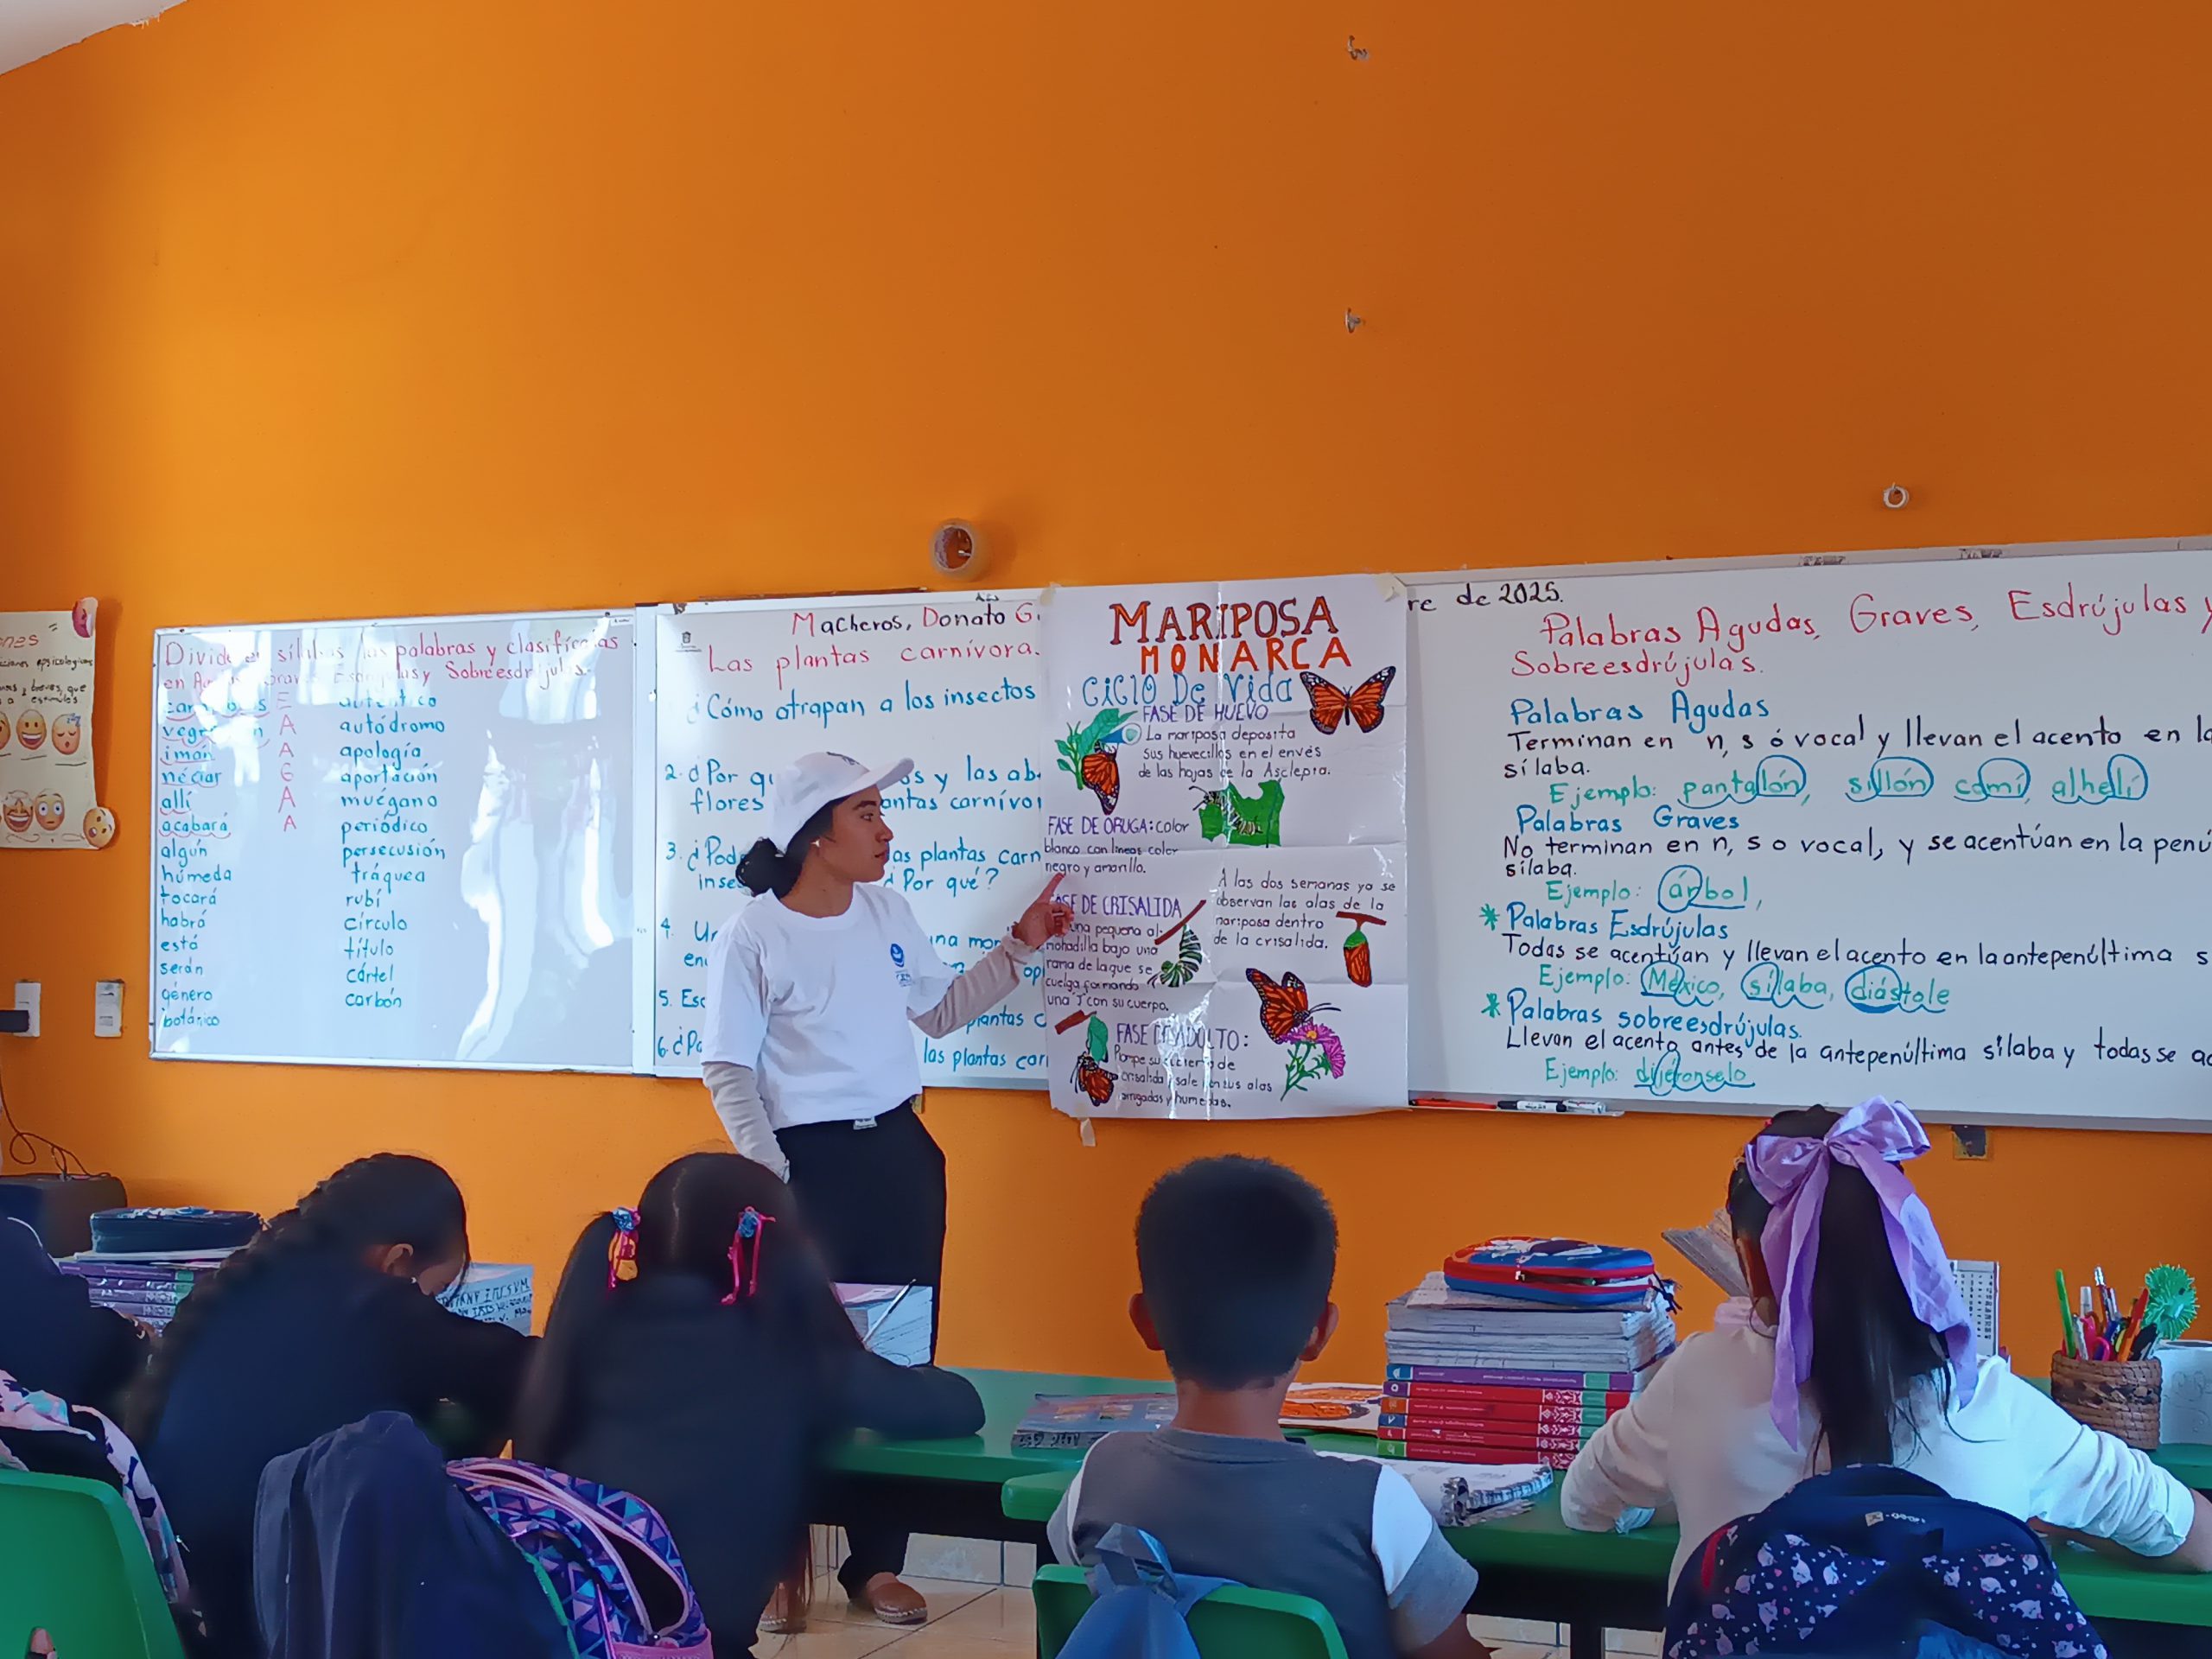 Divide en sílabas las palabras y clasifícalas
en Agudas, Graves, Esdrújulas y Sobreesdrújulas.
E
A
imán A
néctar G
allí A
acabará A
algún
húmeda
tocará
habrá
está
serán
género
botánico
auténtico
autódromo
apología
aportación
muégano
periódico
persecusión
tráquea
rubí
círculo
título
cártel
carbón
Macheros, Donato G.
re de 2025.
Las plantas carnívora
¿Cómo atrapan a los insectos
2. ¿Por qu s y las ab
flores antas carnívo
3. ¿Pod as plantas carn
inse ¿Por qué?
4. Un una mo
en op
5. Esc plantas c
6. ¿Po las plantas car
MARIPOSA
MONARCA
CiClO De Vida
FASE DE HUEVO
La mariposa deposita
sus huevecillos en el envés
de las hojas de la Asclepia.
FASE DE ORUGA: color
blanco con lineas color
negro y amarillo.
FASE DE CRISALIDA
una pequeña al-
mohadilla bajo una
rama de la que se
cuelga formando
una J con su cuerpo.
A las dos semanas ya se
observan las alas de la
mariposa dentro
de la crisalida.
FASE DE ADULTO:
Rompe su de
crisalida y sale con sus alas
arrugadas y humedas.
Palabras Agudas, Graves, Esdrújulas y
Sobreesdrújulas.
Palabras Agudas
Terminan en n, s ó vocal y llevan el acento en la
sílaba.
Ejemplo: pantalón, sillón comí, alhelí
Palabras Graves
No terminan en n, s o vocal, y se acentúan en la penú
sílaba.
Ejemplo: árbol,
* Palabras Esdrújulas
Todas se acentúan y llevan el acento en la antepenúltima s
Ejemplo: México, sílaba, diástole
* Palabras sobreesdrújulas.
Llevan el acento antes de la antepenúltima sílaba y todas se ac
Ejemplo: dijéronselo